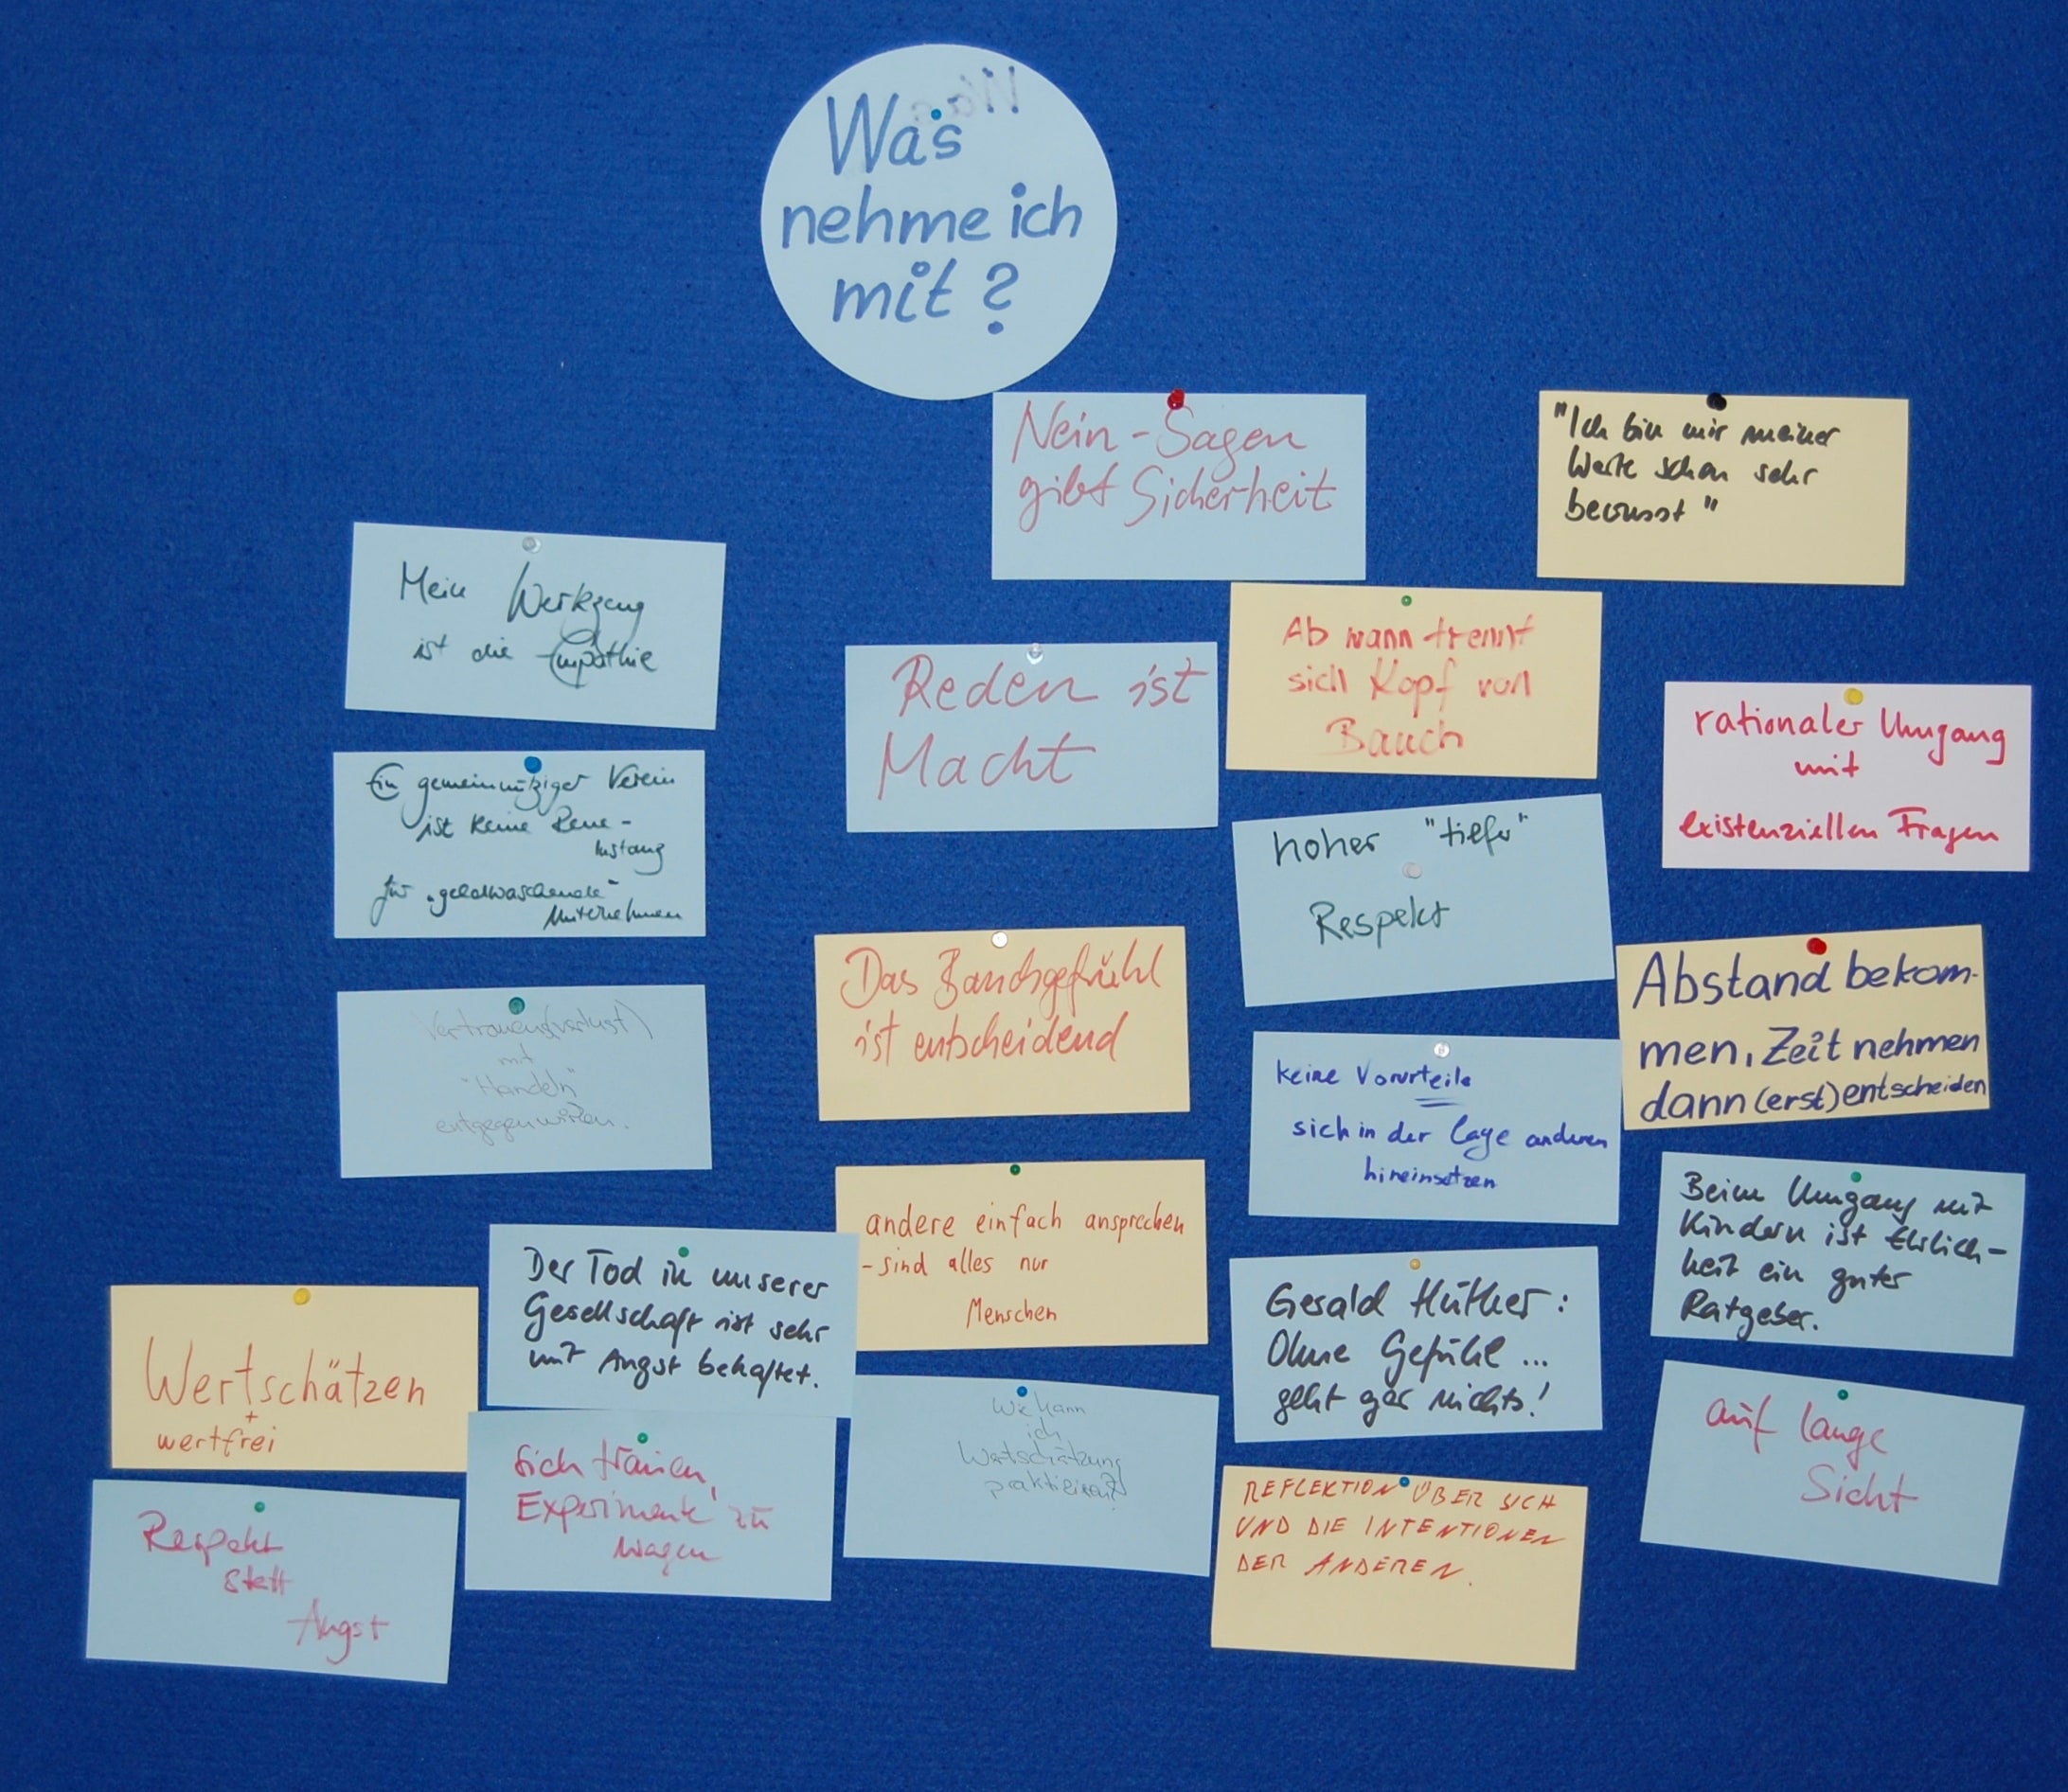 Was
nehme ich
mit?
Nein-Sagen
gibt Sicherheit
"Ich bin mir meiner
Werte schon sehr
bewusst"
Mein Werkzeug
ist die Empathie
Reden ist
Macht
Ab wann trennt
sich Kopf von
Bauch
rationaler Umgang
mit
existenziellen Fragen
Ein gemeinnütziger Verein
ist keine Reue-
Instanz
für "geldwaschende"
Unternehmen
hoher "tiefer"
Respekt
Das Bauchgefühl
ist entscheidend
Abstand bekom-
men, Zeit nehmen
dann (erst) entscheiden
Vertrauen(sverlust)
mit
"Handeln"
entgegenwirken.
keine Vorurteile
sich in der Lage anderen
hineinsetzen
andere einfach ansprechen
- sind alles nur
Menschen
Beim Umgang mit
Kindern ist Ehrlich-
keit ein guter
Ratgeber.
Der Tod in unserer
Gesellschaft ist sehr
mit Angst behaftet.
Gerald Hüther:
Ohne Gefühle...
geht gar nichts!
Wertschätzen
+
wertfrei
Wie kann
ich
Wertschätzung
praktizieren?
auf lange
Sicht
sich trauen,
Experimente zu
wagen
REFLEKTION ÜBER SICH
UND DIE INTENTIONEN
DER ANDEREN.
Respekt
statt
Angst